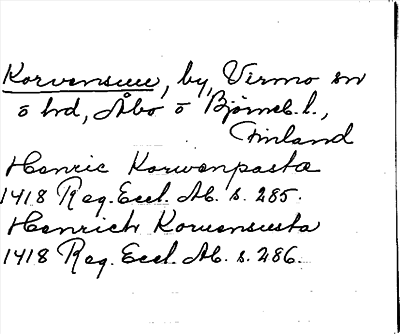 Korvensuu, by, Virmo sn
o hrd, Åbo o Björneb. l.,
Finland
Henric Korwenpasta
1418 Reg. Eccl. Ab. s. 285.
Henrich Koruensusta
1418 Reg. Eccl. Ab. s. 286.